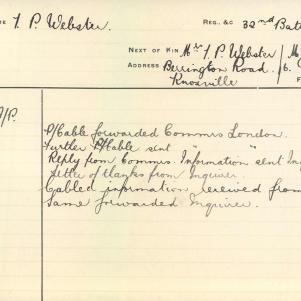 ME T. P. Webster. REG. &C 32nd Bat
NEXT OF KIN Mrs T. P. Webster
ADDRESS Berrington Road 6.
Knoxville
A/P.
P/Cable forwarded Commrs London.
Further P/Cable sent " "
Reply from Commrs. Information sent Inq
Letter of thanks from Inquirer.
Cabled information received from
Same forwarded Inquirer.